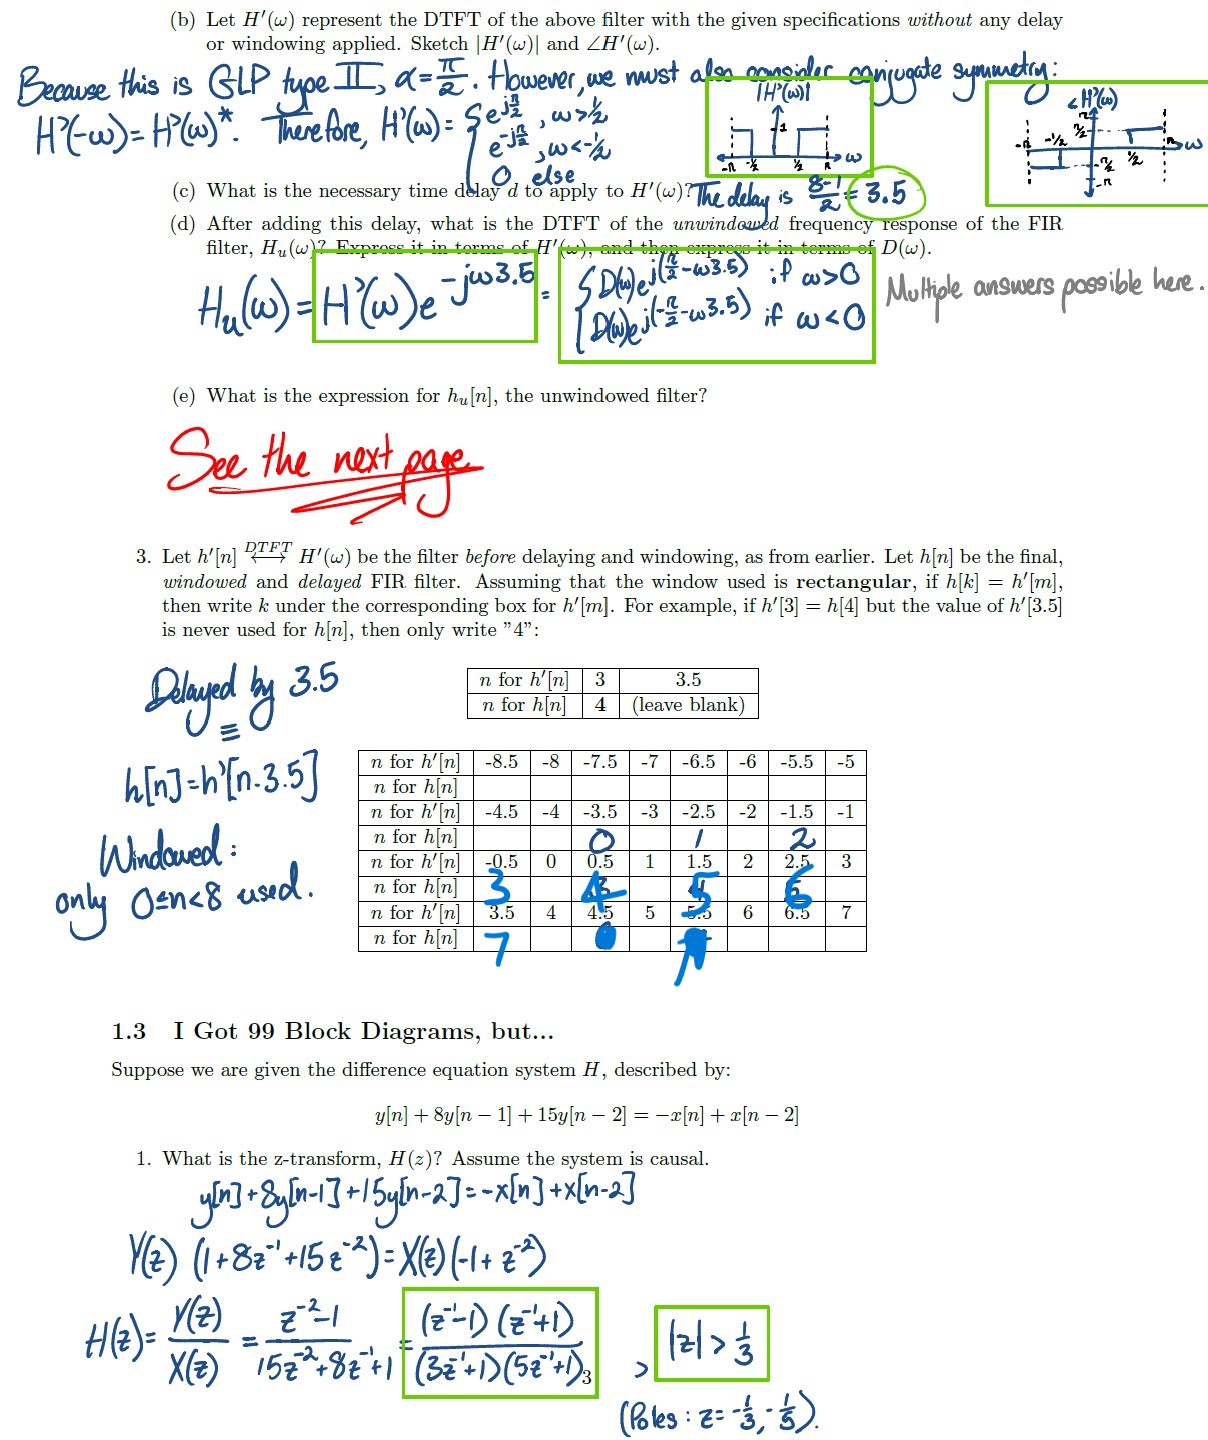 (b) Let H′(ω) represent the DTFT of the above filter with the given specifications without any delay
or windowing applied. Sketch |H′(ω)| and ∠H′(ω).
Because this is GLP type II, α = π/2. However, we must also consider conjugate symmetry:
H'(-ω) = H'(ω)*. Therefore, H'(ω) = { e^{jπ/2}, ω > 1/2
e^{-jπ/2}, ω < -1/2
0 else
|H'(ω)|
1
-π -1/2 1/2 π ω
∠H'(ω)
π
π/2
-π -1/2 1/2 π ω
-π/2
-π
(c) What is the necessary time delay d to apply to H′(ω)? The delay is (8-1)/2 = 3.5
(d) After adding this delay, what is the DTFT of the unwindowed frequency response of the FIR
filter, Hu(ω)? Express it in terms of H′(ω), and then express it in terms of D(ω).
Hu(ω) = H'(ω)e^{-jω3.5} = { D(ω)e^{j(π/2-ω3.5)} if ω>0
D(ω)e^{j(-π/2-ω3.5)} if ω<0
Multiple answers possible here.
(e) What is the expression for hu[n], the unwindowed filter?
See the next page
3. Let h′[n] DTFT ⟷ H′(ω) be the filter before delaying and windowing, as from earlier. Let h[n] be the final,
windowed and delayed FIR filter. Assuming that the window used is rectangular, if h[k] = h′[m],
then write k under the corresponding box for h′[m]. For example, if h′[3] = h[4] but the value of h′[3.5]
is never used for h[n], then only write ”4”:
n for h′[n] 3 3.5
n for h[n] 4 (leave blank)
Delayed by 3.5
≡
h[n]=h'[n-3.5]
Windowed:
only 0≤n<8 used.
n for h′[n] -8.5 -8 -7.5 -7 -6.5 -6 -5.5 -5
n for h[n]
n for h′[n] -4.5 -4 -3.5 -3 -2.5 -2 -1.5 -1
n for h[n] 0 1 2
n for h′[n] -0.5 0 0.5 1 1.5 2 2.5 3
n for h[n] 3 4 5 6
n for h′[n] 3.5 4 4.5 5 5.5 6 6.5 7
n for h[n] 7
1.3 I Got 99 Block Diagrams, but...
Suppose we are given the difference equation system H, described by:
y[n] + 8y[n − 1] + 15y[n − 2] = −x[n] + x[n − 2]
1. What is the z-transform, H(z)? Assume the system is causal.
y[n]+8y[n-1]+15y[n-2]=-x[n]+x[n-2]
Y(z) (1+8z^-1+15z^-2) = X(z)(-1+z^-2)
H(z) = Y(z)/X(z) = (z^-2-1)/(15z^-2+8z^-1+1) = (z^-1-1)(z^-1+1)/(3z^-1+1)(5z^-1+1), |z| > 1/3
3
(Poles: z = -1/3, -1/5).